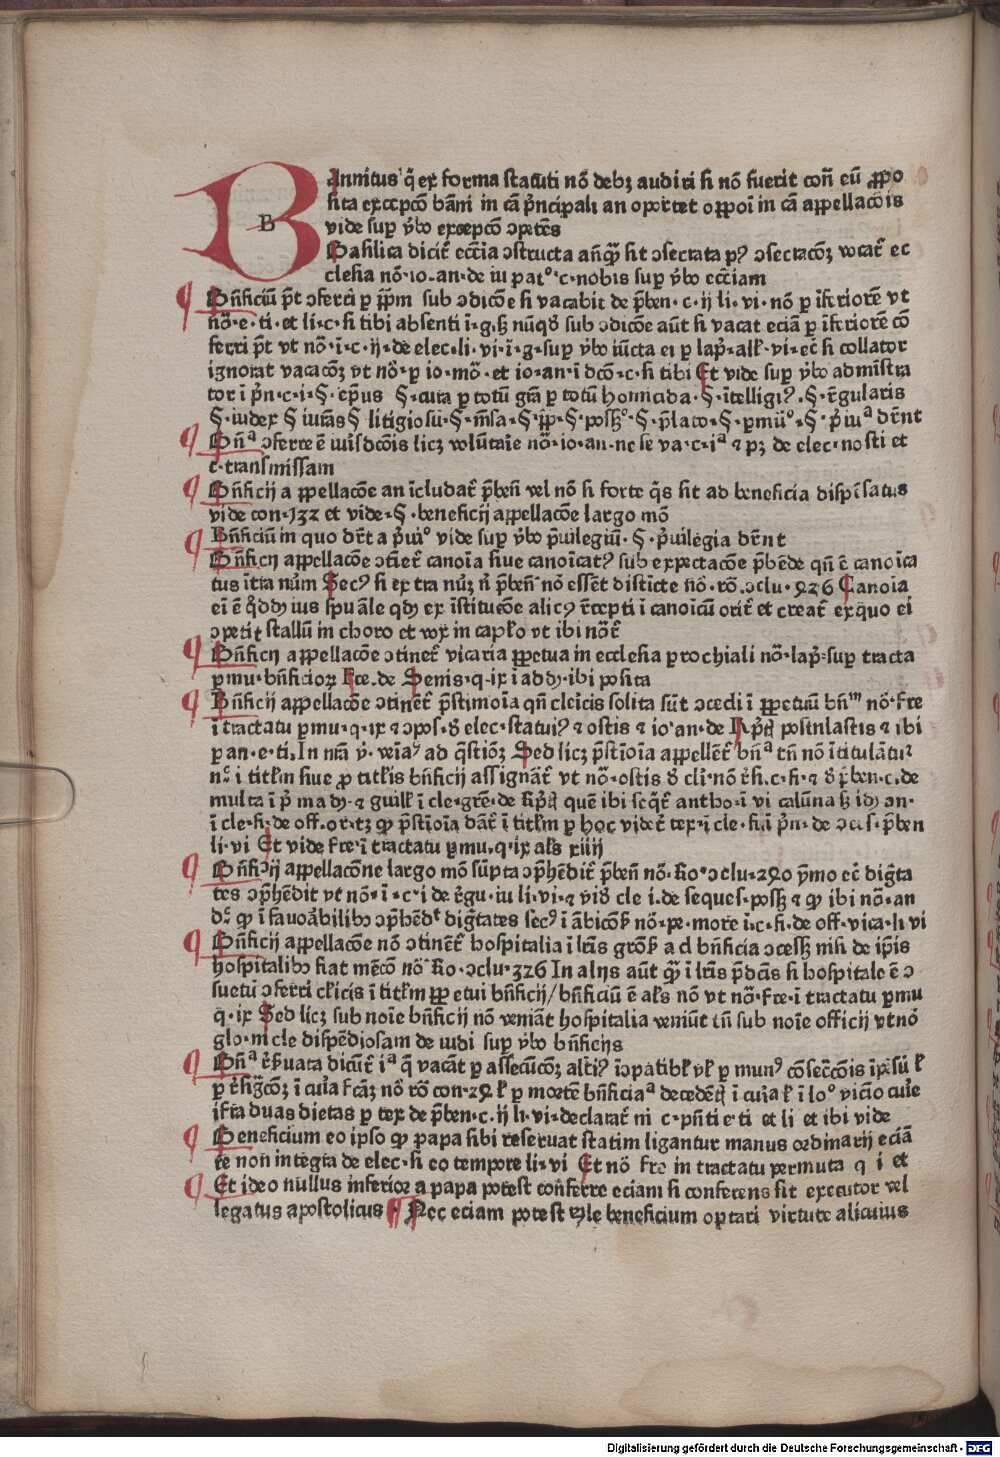 BAnnitus q̄ ex forma statuti nō debꝫ audiri si nō fuerit con̄ eū ꝓpo
sita excepcō bāni in cā pͥncipali an oportet oꝓpoī in cā appellacōis
vide suꝑ v̓bo excepcō ↄpetēs
Basilica dicit̄ ecc̄ia ↄstructa an̄qꝫ sit ↄsecrata pꝰ ↄsecracōꝫ vocat̄ ec
clesia nō·io·an·de iu pat°·c·nobis suꝑ v̓bo ecc̄iam
Bn̄ficiū pt̄ ↄferri ꝑ pp̄m sub ↄdicōe si vacabit de p̄ben·c·ij li·vi·nō ꝑ īferiorē vt
nō·e·ti·et li·c·si tibi absenti ī·g·sꝫ nūqd̓ sub ↄdicōe aūt si vacat eciā ꝑ īferiorē cō
ferri pt̄ vt nō·ī·c·ij·de elec·li·vi·ī·g·suꝑ v̓bo iūcta ei ꝑ lap̄·alk̄·vi·ec̄ si collator
ignorat vacacōꝫ vt nō·ꝑ io·mō·et io·an·ī dcō·c·si tibi Et vide suꝑ v̓bo admīstra
tor ī pͥn·c·i·§·ep̄us §·cura ꝑ totū gr̄a ꝑ totū homicida·§·ītelligiꝰ·§·r̄gularis
§·iudex § iurās § litigiosū·§·m̄sa·§·pp̄·§·possꝫ°·§·p̄lato·§·ꝑmū°·§·pͥuiᵃ dr̄nt
Bn̄ᵃ ↄferre ē iuīsdcōis licꝫ volūtaīe nō·io·an·ne se va·c·iᵃ ⁊ pꝫ de elec·nosti et
c·transmissam
Bn̄ficij appellacōe an īcludat̄ p̄ben̄ vel nō si forte qͥs sit ad beneficia dispīsatus
vide con·132 et vide·§·beneficij appellacōe largo mō
Bn̄ficiū in quo dr̄t a pͥui° vide suꝑ v̓bo pͥuilegiū·§·pͥuilegia dr̄nt
Bn̄ficij appellacōe ↄtiet̄ canoīa siue canoīcatꝰ sub expectacōe p̄bēde qn̄ ē canoīca
tus īt̄ra nūm Secꝰ si ex tra nūꝫ n̄ p̄ben̄ nō essēt disticte nō·rō·ↄclu·926 Canoīa
ei ē qd̓dꝫ ius spūāle qdꝫ ex īstitucōe alicꝰ r̄cepti ī canoīcū orit̄ et creat̄ ex quo ei
ↄpetit stallū in choro et vox in capl̄o vt ibi nōt̄
Bn̄ficij appellacōe ↄtinet̄ vicaria ꝓpetua in ecclesia ꝑrochiali nō·lap̄·suꝑ tracta
ꝑmu·bn̄ficioꝝ Fre·de Senis·q·ix ī addꝫ·ibi posita
Bn̄ficij appellacōe ↄtinēt̄ p̄stimoīa qn̄ cleīcis solita sūt ↄcedi ī ꝓpetuū bn̄ᵐ nō·fre
ī tractatu ꝑmu·q·ix ⁊ ↄpos·d̓ elec·statuiꝰ ⁊ ostis ⁊ io·an·de postulastis ⁊ ibi
ꝑ an·e·ti·In nrā v̓·veīaꝰ ad qͥstiōꝫ Sed licꝫ p̄stioīa appellēt̄ bn̄ᵃ tn̄ nō ītitulāt̄
n̄ ī titl̄m siue ꝓ titl̄is bn̄ficij assignāt̄ vt nō·ostis d̓ cli·nō r̄si·c·fi·⁊ d̓ p̄ben·c·de
multa ī pͥ ma dꝫ·⁊ guilk̄ ī cle·grē·de quē ibi seqt̄ antho·ī vi calūna sꝫ idꝫ an·
ī cle·fi·de off·or·tꝫ ꝙ p̄stioīa dāt̄ ī titl̄m ꝑ hoc videt̄ tex·ī cle·fi·ī pͥn·de p̄ben
li·vi Et vide fre·ī tractatu ꝑmu·q·ix al̄s xiiij
Bn̄ficij appellacōne largo mō sūpta ↄp̄hēdit̄ p̄ben̄ nō·Ro·ↄclu·290 pͥmo ec̄ dig̃ta
tes ↄp̄hēdit vt nō·ī·c·i de r̄gu·iu li·vi·⁊ cle i·de seques·possꝫ ⁊ ꝙ ibi nō·an
d̄· ꝙ ī fauoabilibꝰ ↄp̄hēdt̄ dig̃tates secꝰ ī ābicōe nō·pe·more ī·c·fi·de off·vica·li vi
Bn̄ficij appellacōe nō ↄtinēt̄ hospitalia ī lrīs ad bn̄ficia ↄcessꝫ nisi de ip̄is
hospitalibꝰ fiat mēcō nō Ro·ↄclu·326 In alijs aūt qꝫ ī lrīs p̄dcīs si hospitale ē ↄ
suetū ↄferri cl̄icis ī titl̄m ꝓpetui bn̄ficij/bn̄ficiū ē al̄s nō vt nō·fre·ī tractatu ꝑmu
q·ix Sed licꝫ sub noīe bn̄ficij nō veniāt hospitalia veniūt tn̄ sub noīe officij vt nō
glo·in cle dispēdiosam de iudi suꝑ v̓bo bn̄ficijs
Bn̄ᵃ r̄s̓uata dicūt̄ iᵃ q̄ vacāt ꝑ assecucōꝫ alt̄iꝰ īↄpatibl̄ vl̄ ꝑ munꝰ cōsec̄cōis
ꝑ ī cuiᵃ nō rō con·29 l̄ ꝑ mortē bn̄ficiaᵃ ī cuiᵃ l̄ ī lo° vicīo cuīe
īfra duas dietas ꝑ tex de p̄ben·c·ij li·vi·declarat̄ in c·pn̄ti e·ti et li et ibi vide
Beneficium eo ipso ꝙ papa sibi reseruat statim ligantur manus ordinarij eciā
re non integra de elec·si eo tempore li·vi Et nō fre in tractatu permuta q i et
Et ideo nullus inferior a papa potest conferre eciam si conferens sit executor vel
legatus apostolicus Nec eciam potest tale beneficium optari virtute alicuius
Digitalisierung gefördert durch die Deutsche Forschungsgemeinschaft - DFG